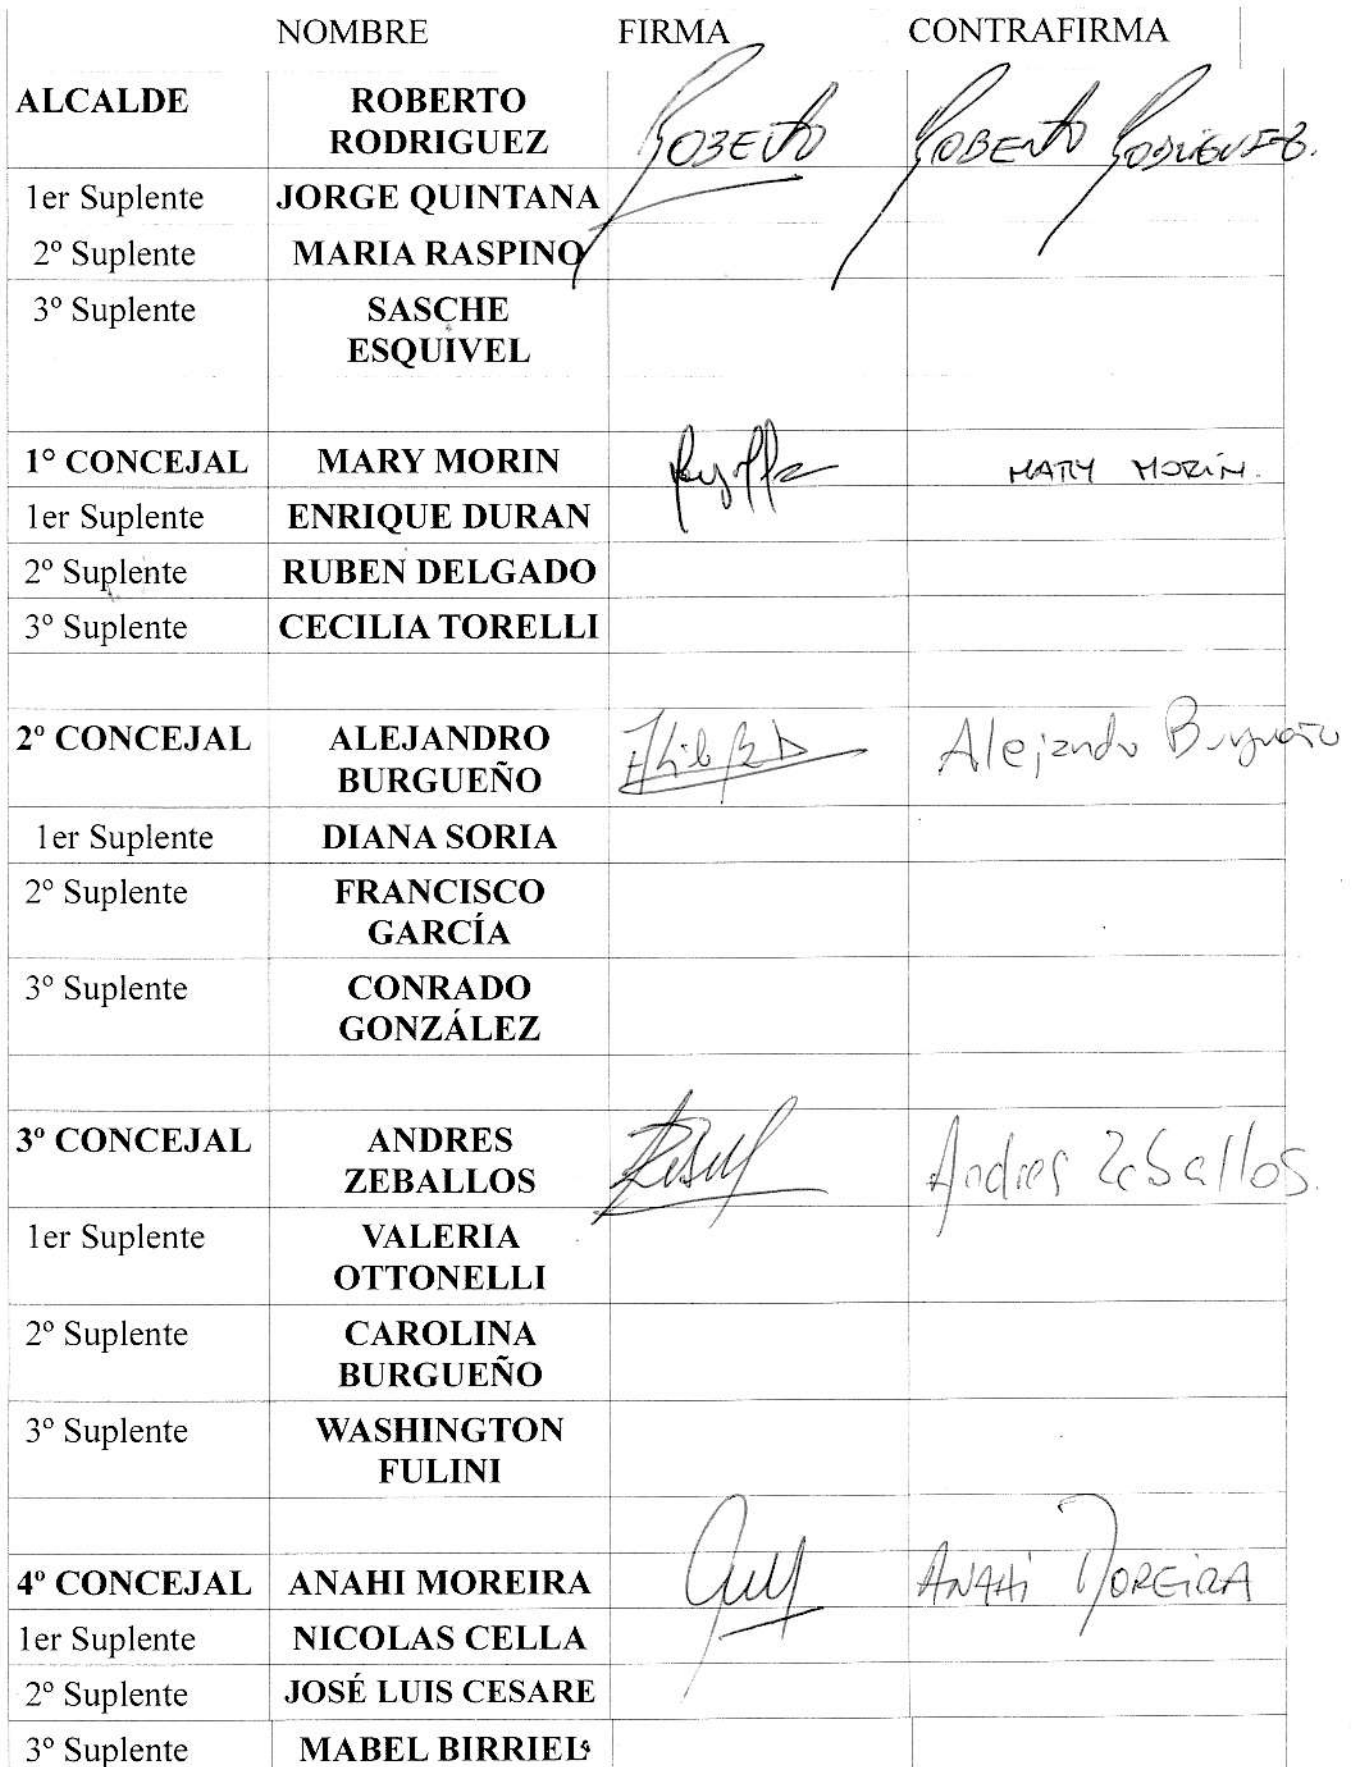 NOMBRE FIRMA CONTRAFIRMA
ALCALDE ROBERTO RODRIGUEZ Roberto Roberto Rodriguez.
1er Suplente JORGE QUINTANA
2º Suplente MARIA RASPINO
3º Suplente SASCHE
ESQUIVEL
1º CONCEJAL MARY MORIN MARY MORiN.
1er Suplente ENRIQUE DURAN
2º Suplente RUBEN DELGADO
3º Suplente CECILIA TORELLI
2º CONCEJAL ALEJANDRO
BURGUEÑO Alejandro Burgueño
1er Suplente DIANA SORIA
2º Suplente FRANCISCO
GARCÍA
3º Suplente CONRADO
GONZÁLEZ
3º CONCEJAL ANDRES
ZEBALLOS Andres Zeballos.
1er Suplente VALERIA
OTTONELLI
2º Suplente CAROLINA
BURGUEÑO
3º Suplente WASHINGTON
FULINI
4º CONCEJAL ANAHI MOREIRA ANAHi MOREiRA
1er Suplente NICOLAS CELLA
2º Suplente JOSÉ LUIS CESARE
3º Suplente MABEL BIRRIEL